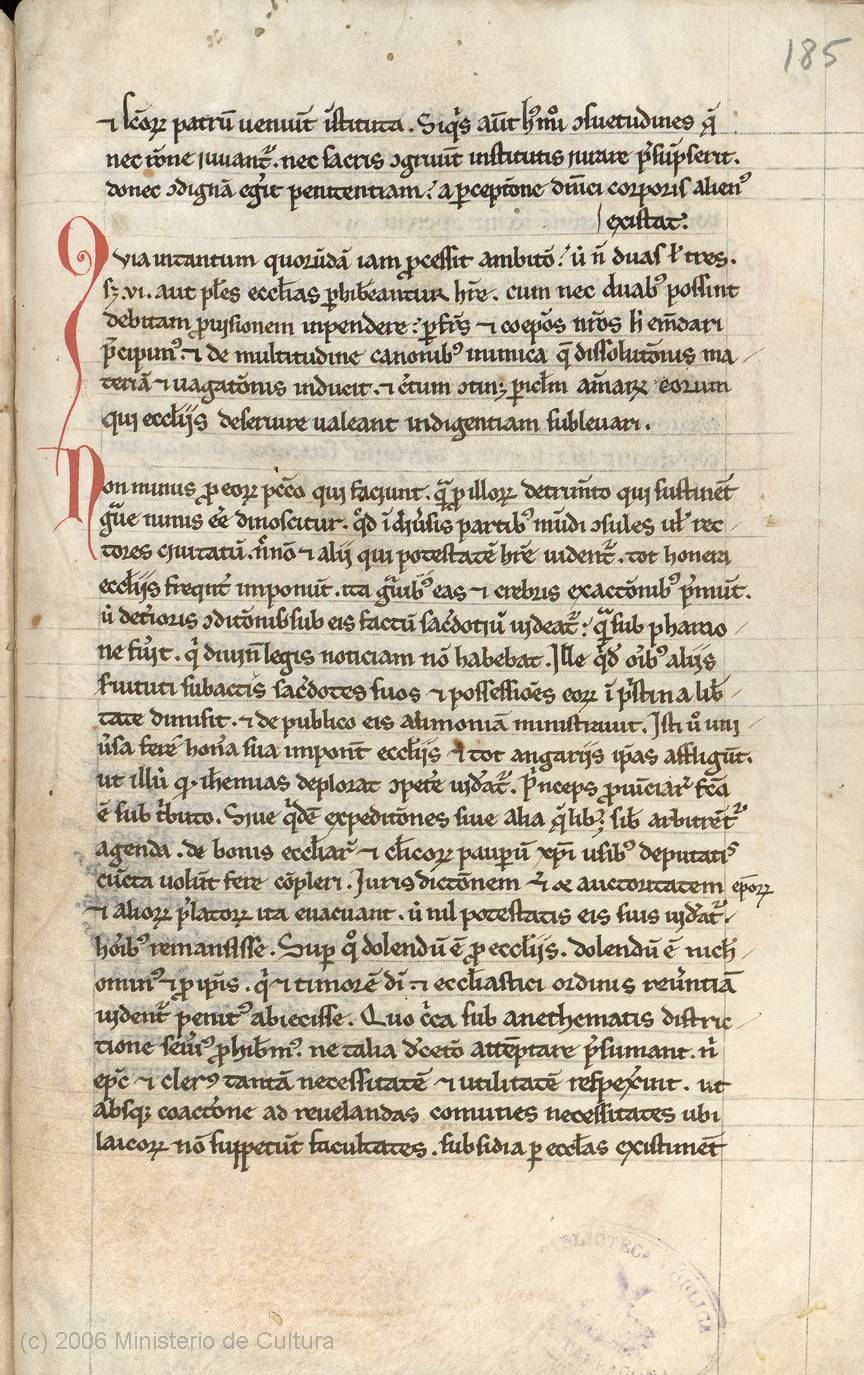 185
⁊ sc̄oꝝ patrū ueniūt īstituta. Siq͛s aūt hꝰmōi ↄsuetudines q̄
nec rōne iuuant᷑. nec sacris ↄgruūt institutis iurare p͛sūpserit.
donec ↄdignā eḡit penitentiam⹎ a ꝑceptōne dn̄ici corporis alienꝰ
existat.
Quia intantum quorūdā iam ꝓcessit ambitō⹎ ut n̄ duas ł tres.
sꝫ .vi. aut pl̄es eccl̄ias ꝑhibeantur hr̄e. cum nec duabꝰ possint
debitam ꝓuisionem inpendere⹎ ꝑ fr̄s ⁊ coep̄os nr̄os h̄ em̄dari
p͛cipimꝰ. ⁊ de multitudine canonibꝰ inimica q̄ dissolutōnis ma
teriā ⁊ uagatōnis inducit. ⁊ c̄tum ↄtinꝫ ꝑic̄lm aīarꝝ eorum
qui eccl̄iis deseruire ualeant indigentiam subleuari.
Non minus ꝓ eoꝝ pc̄cō qui faciunt. q̄ꝫ ꝓ illoꝝ detrim̄to qui sustinēt
gᷓue nimis eē dinoscitur. qͦd ī diūsis partibꝰ mūdi ↄsules uł rec
tores ciuitatū. n̄nō ⁊ alii qui potestatē hr̄e uident᷑. tot honera
eccl̄iis freqn̄t᷑ imponūt. ita gᷓuibꝰ eas ⁊ crebris exactōnibꝰ p͛mūt.
ut det̄ioris ↄditōnis sub eis factū sac̄dotiū uideat᷑⹎ qᷓꝫ sub pharao
ne fūit. q͛ diuin̄ legis noticiam nō habebat. Ille qͥdē oībꝰ aliis
s̄uituti subactis sac̄dotes suos ⁊ possessiōes eoꝝ ī p͛stina lib̄
tate dimisit. ⁊ de publico eis alimoniā ministrauit. Isti uͦ uni
ūsa ferē hon̄a sua impon̄t eccl̄iis ⁊ tot angariis ip̄as affligūt.
ut illū q. ih̓emias deplorat ↄpet̄e uid̄at᷑. P͛nceps ꝓuīciaꝝ fc̄a
ē sub t͛buto. Siue qͥdē expeditōnes siue alia q̄libꝫ sib̄ arbitrēt᷑
agenda. de bonis eccl̄iaꝝ ⁊ cl̄icoꝝ paupeꝝ xp̄i usibꝰ deputatis
cūcta uolūt fere cōpleri. Iurisdictōnem ⁊ auctoritatem ep̄oꝝ
⁊ alioꝝ p͛latoꝝ ita euacuant. ut nil potestatis eis suis uid̄at᷑
hōibꝰ remansisse. Sup qͦ dolendū ē ꝓ eccl̄iis. dolendū ē nich̄
ominꝰ ⁊ ꝓ ip̄is. q͛ ⁊ timorē di. ⁊ eccl̄iastici ordinis reūntiā
uident᷑ penitꝰ abiecisse. Quo c͛ca sub anethematis distric
tione seūiꝰ ꝓhibemꝰ. ne talia d̄cetō attēptare p͛sumant. n͛
ep̄c ⁊ clerꝰ tantā necessitatē ⁊ utilitatē respex̄int. ut
absqꝫ coactōne ad reuelandas comunes necessitates ubi
laicoꝝ nō suppetūt facultates. subsidia ꝑ eccl̄as existimēt
BIBLIOTECA PUBLICA
TARRAGONA
(c) 2006 Ministerio de Cultura